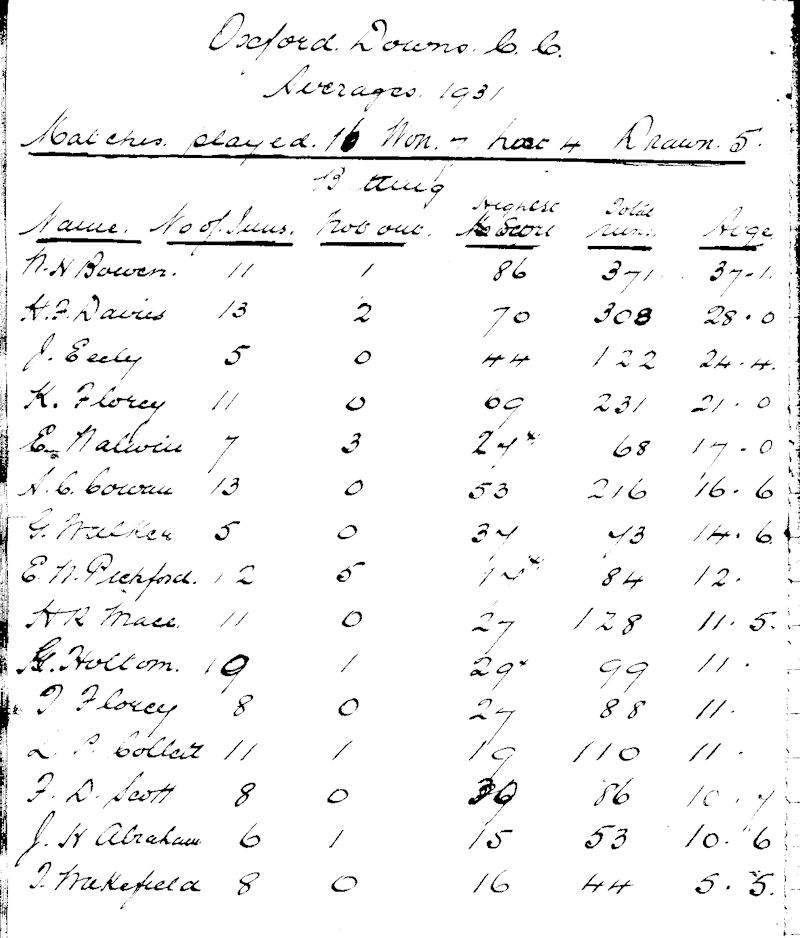 Oxford. Downs. C. C.
Averages. 1931
Matches. played. 16 Won. 7 Lost 4 Drawn. 5.
Batting
Name. No of Inns. Not out. Highest Score Total runs. Avge
N. H Bowen. 11 1 86 371 37.1.
H. F. Davies 13 2 70 308 28.0
J. Eeely 5 0 44 122 24.4.
K. Florey 11 0 69 231 21.0
E. Nalwin 7 3 27* 68 17.0
A. C. Cowan 13 0 53 216 16.6
G. Walker 5 0 37 73 14.6
E. N. Pickford. 12 5 84 12.
H R Mace. 11 0 27 128 11.5.
G. Holtom. 10 1 29* 99 11.
T Florey 8 0 27 88 11.
L P. Collett 11 1 19 110 11.
F. D. Scott 8 0 39 86 10.7
J. H Abraham 6 1 15 53 10.6
T. Wakefield 8 0 16 44 5.5.